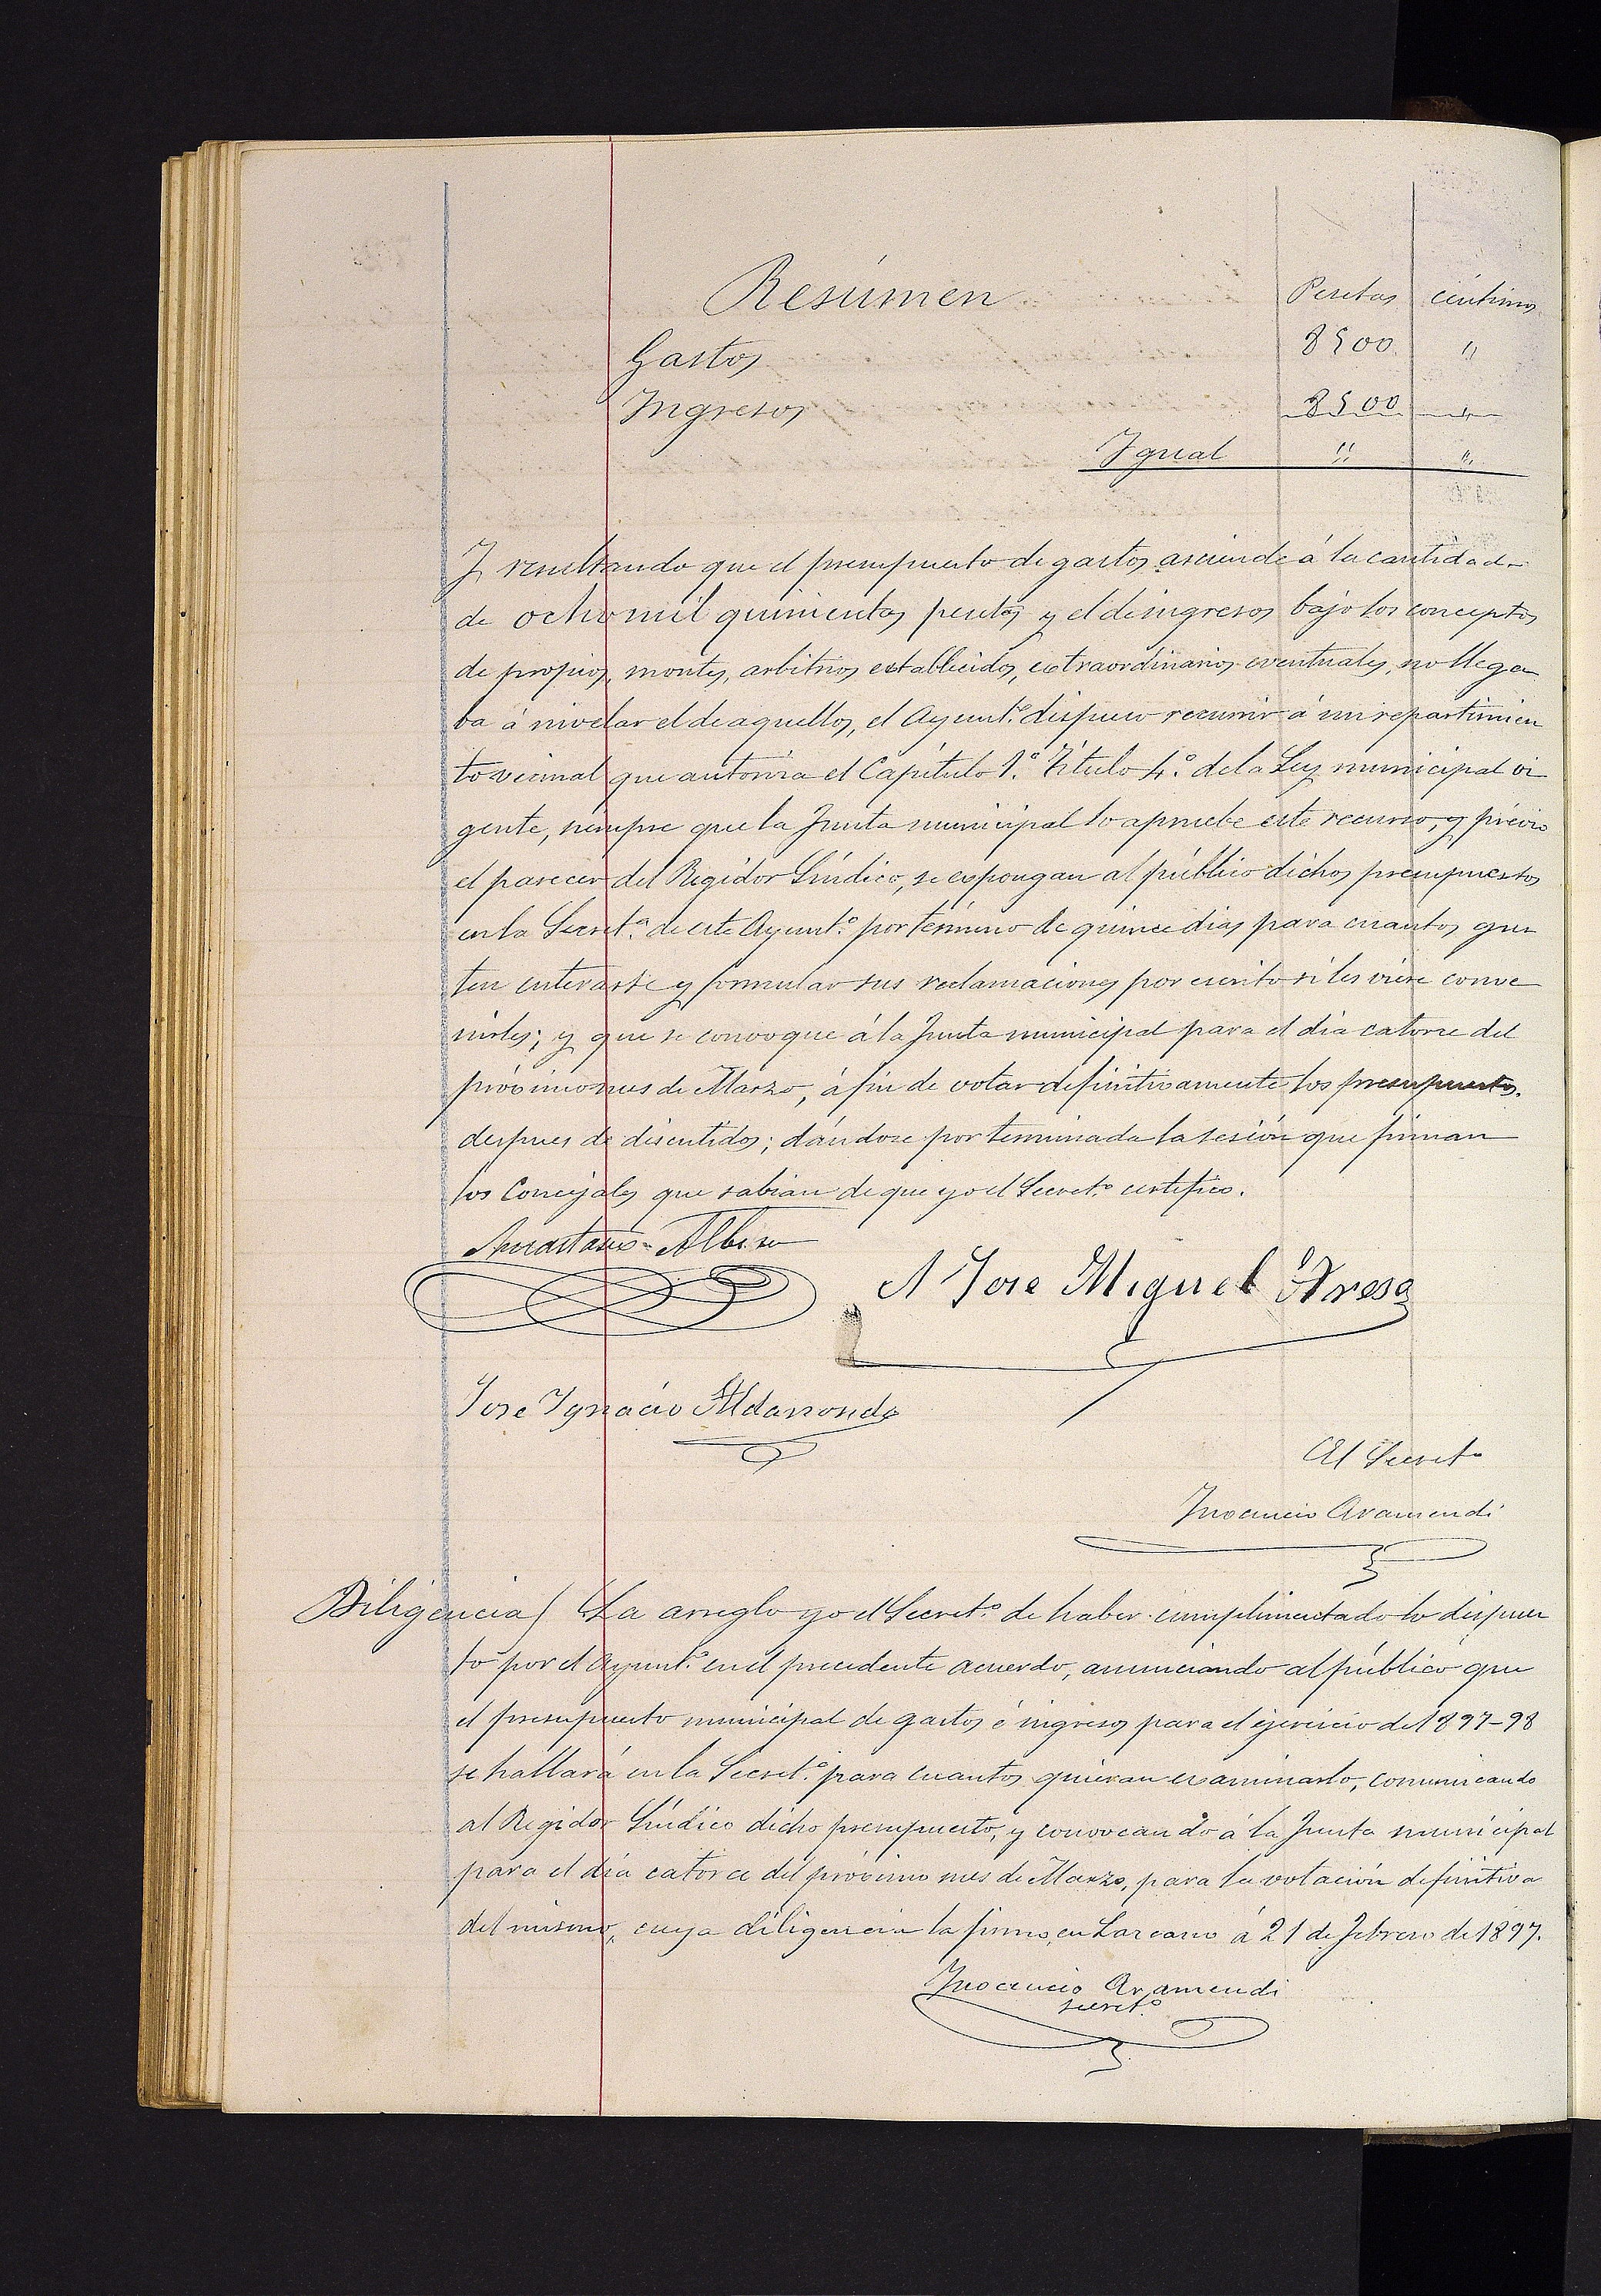 Resúmen Pesetas céntimos
Gastos 8500 "
Ingresos 8500 "
Igual " "
Y resultando que el presupuesto de gastos asciende á la cantidad
de ocho mil quinientas pesetas y el de ingresos bajo los conceptos
de propios, montes, arbitrios establecidos, extraordinarios eventuales, no llega
ba á nivelar el de aquellos, el Ayunt.º dispuso recurrir á un repartimien
to vecinal que autoriza el Capítulo 1.º Título 4.º de la Ley municipal vi
gente, siempre que la Junta municipal lo apruebe este recurso, y prévio
el parecer del Regidor Síndico, se expongan al público dichos presupuestos
en la Secret.ª de este Ayunt.º por término de quince dias para cuantos gus
ten enterarse y formular sus reclamaciones por escrito si les viere conve
nirles; y que se convoque á la Junta municipal para el dia catorce del
próximo mes de Marzo, á fin de votar definitivamente los presupuestos.
despues de discutidos; dándose por terminada la sesión que firman
los Concejales que sabian de que yo el Secret.º certifico.
Anastasio Albisu
José Miguel
José Ignacio Aldasoro
El Secret.º
Inocencio Aramendi
Diligencia/ La arreglo yo el Secret.º de haber cumplimentado lo dispues
to por el Ayunt.º en el precedente acuerdo, anunciando al público que
el presupuesto municipal de gastos é ingresos para el ejercicio de 1897-98
se hallará en la Secret.ª para cuantos quieran examinarlo, comunicando
al Regidor Síndico dicho presupuesto, y convocando á la Junta municipal
para el día catorce del próximo mes de Marzo, para la votación definitiva
del mismo, cuya diligencia la firmo, en Lazcano á 21 de Febrero de 1897.
Inocencio Aramendi
secret.º